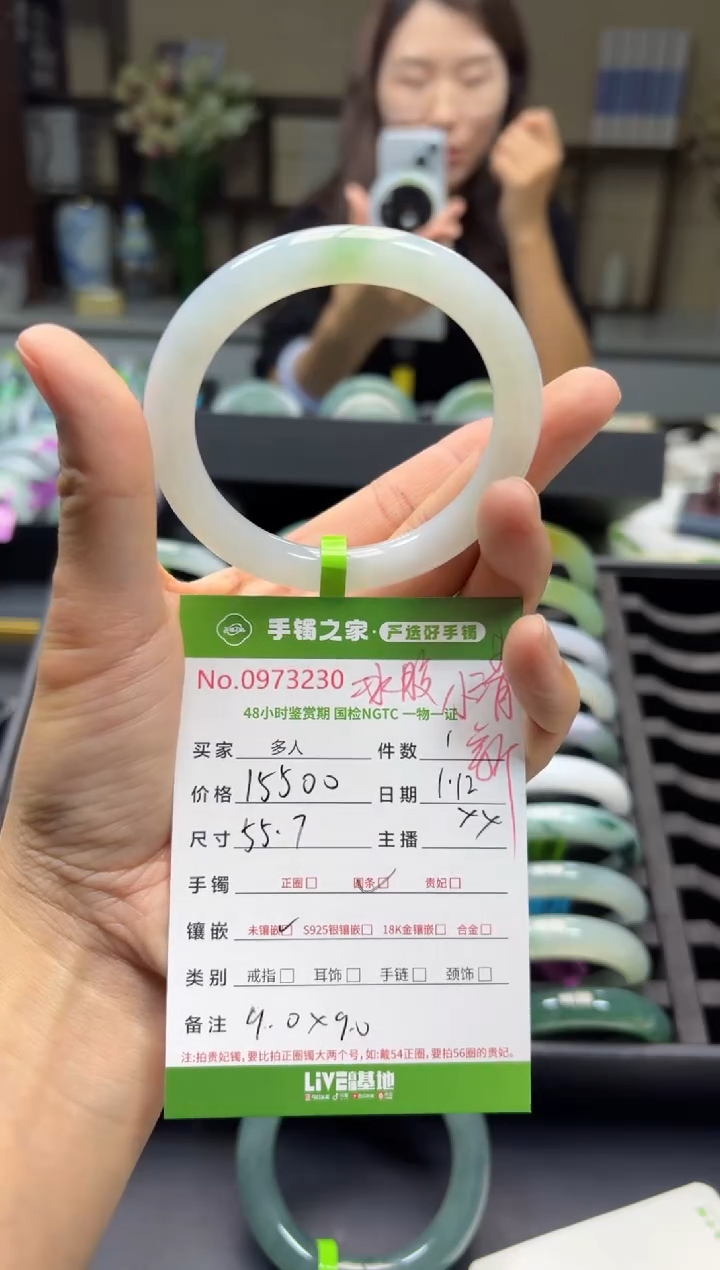 手镯之家·严选好手镯
No.0973230 冰胶
48小时鉴赏期 国检NGTC 一物一证
买家 多人 件数 1
价格 15500 日期 1.12
尺寸 55.7 主播 XX
手镯 正圈□ 圆条□ 贵妃□
镶嵌 未镶嵌□ S925银镶嵌□ 18K金镶嵌□ 合金□
类别 戒指□ 耳饰□ 手链□ 颈饰□
备注 9.0×9.0
注:拍贵妃镯,要比拍正圈镯大两个号,如:戴54正圈,要拍56圈的贵妃。
LiVE基地